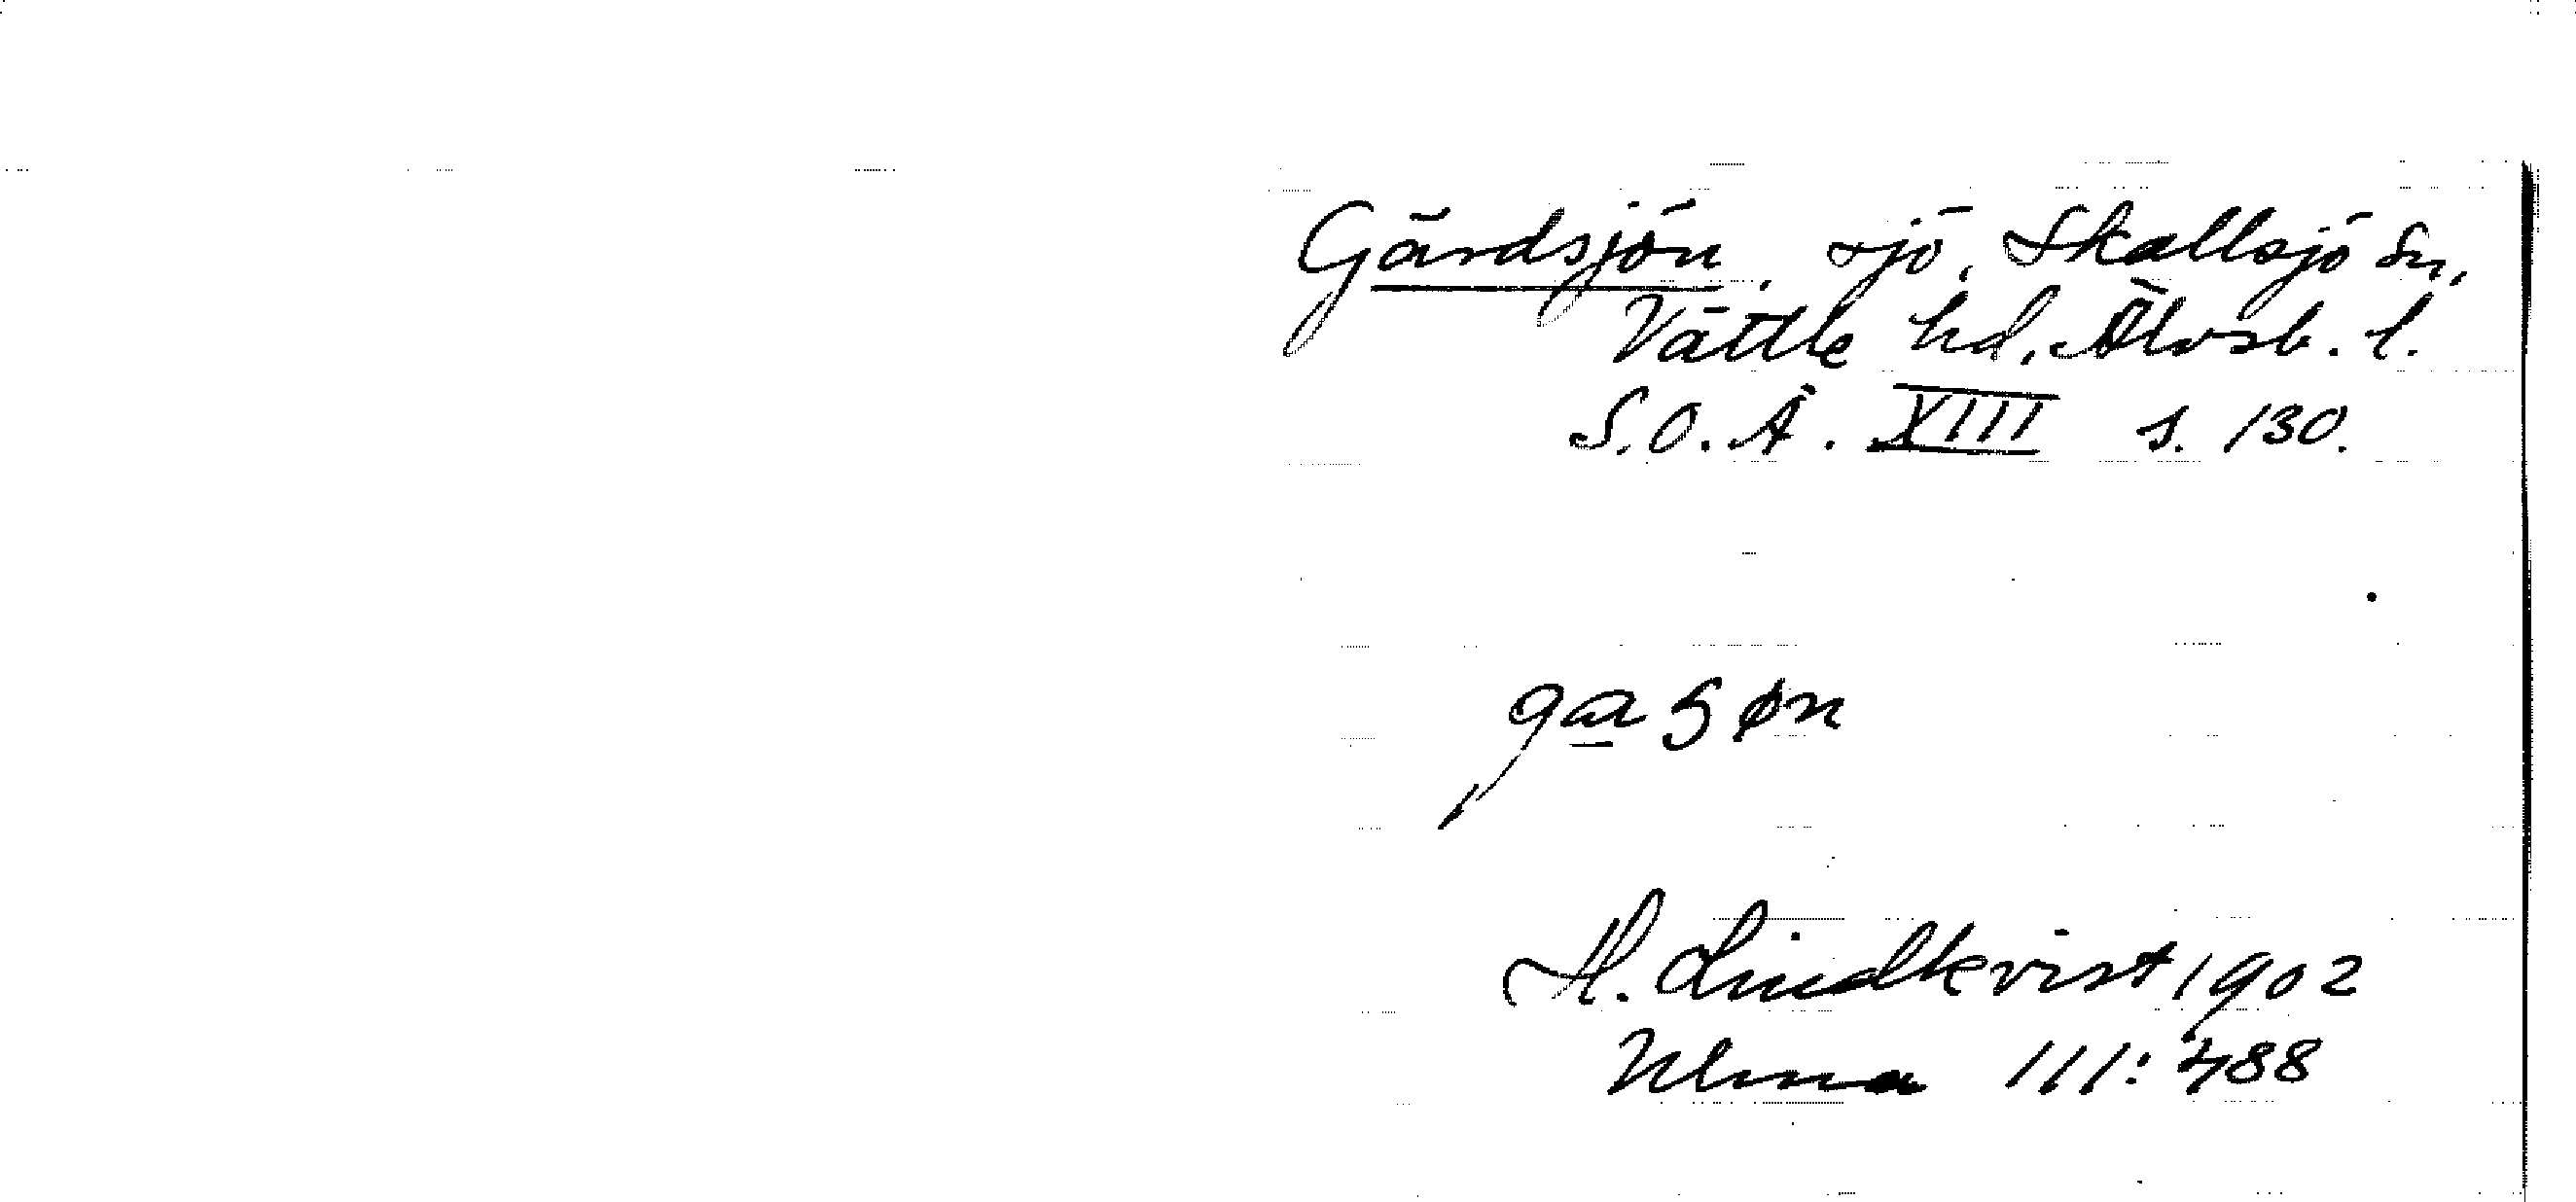 Gärdsjön, sjö, Skallsjö sn,
Vättle hd, Älvsb. l.
S.O.Ä. XIII s. 130.
H. Lindkvist 1902
Ulma 111:488